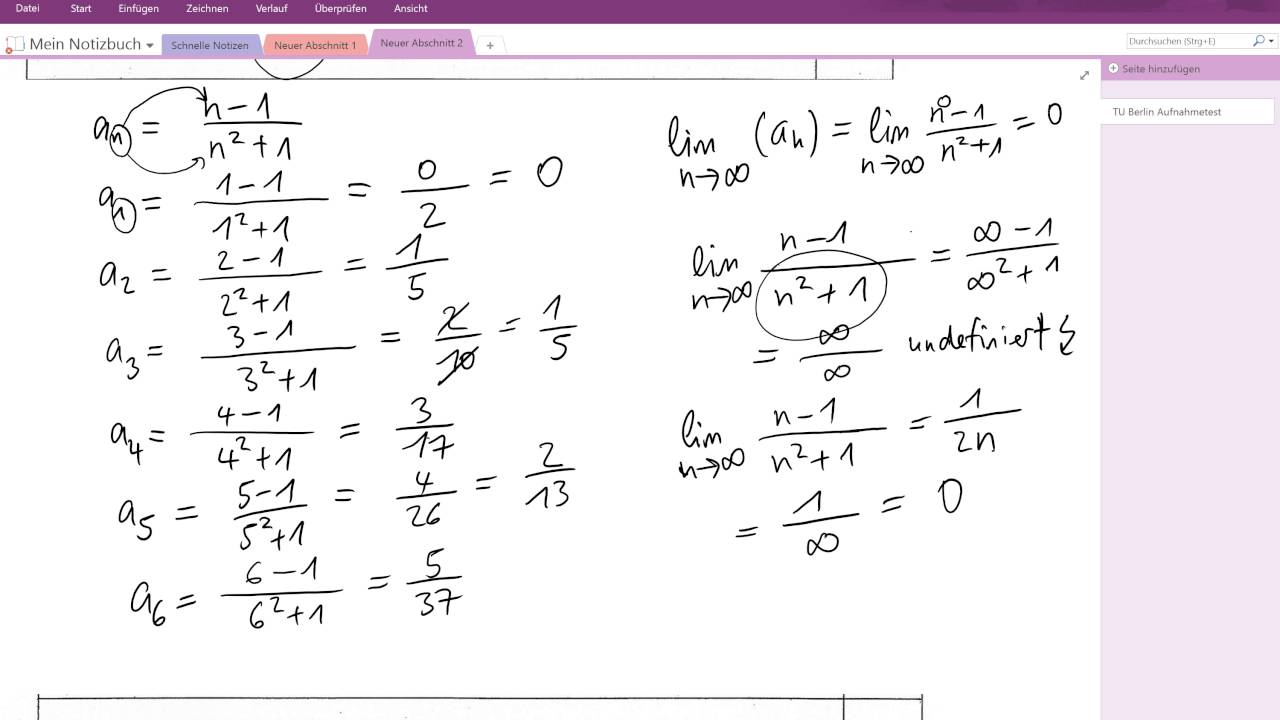 Datei Start Einfügen Zeichnen Verlauf Überprüfen Ansicht
Mein Notizbuch Schnelle Notizen Neuer Abschnitt 1 Neuer Abschnitt 2 + Durchsuchen (Strg+E)
Seite hinzufügen
TU Berlin Aufnahmetest
aₙ = (n-1)/(n²+1)
a₁ = (1-1)/(1²+1) = 0/2 = 0
a₂ = (2-1)/(2²+1) = 1/5
a₃ = (3-1)/(3²+1) = 2/10 = 1/5
a₄ = (4-1)/(4²+1) = 3/17
a₅ = (5-1)/(5²+1) = 4/26 = 2/13
a₆ = (6-1)/(6²+1) = 5/37
lim n→∞ (aₙ) = lim n→∞ (n-1)/(n²+1) = 0
lim n→∞ (n-1)/(n²+1) = (∞-1)/(∞²+1)
= ∞/∞ undefiniert
lim n→∞ (n-1)/(n²+1) = 1/2n
= 1/∞ = 0